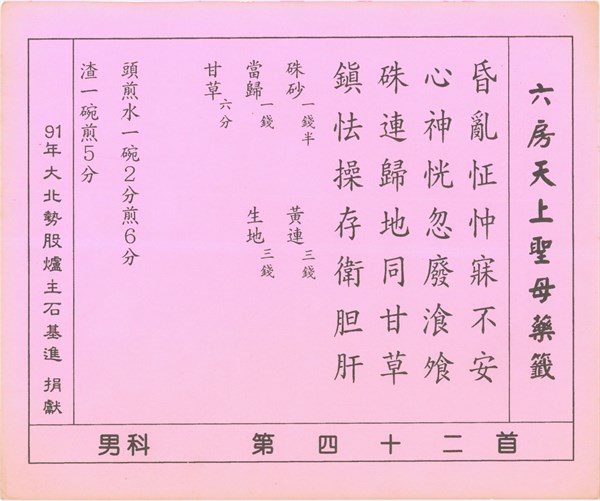 六房天上聖母藥籤
昏亂怔忡寐不安
心神恍忽廢飡飧
硃連歸地同甘草
鎮怯操存衛胆肝
硃砂一錢半 黃連三錢
當歸一錢 生地三錢
甘草六分
頭煎水一碗2分煎6分
渣一碗煎5分
91年大北勢股爐主石基進 捐獻
首二十四第 男科